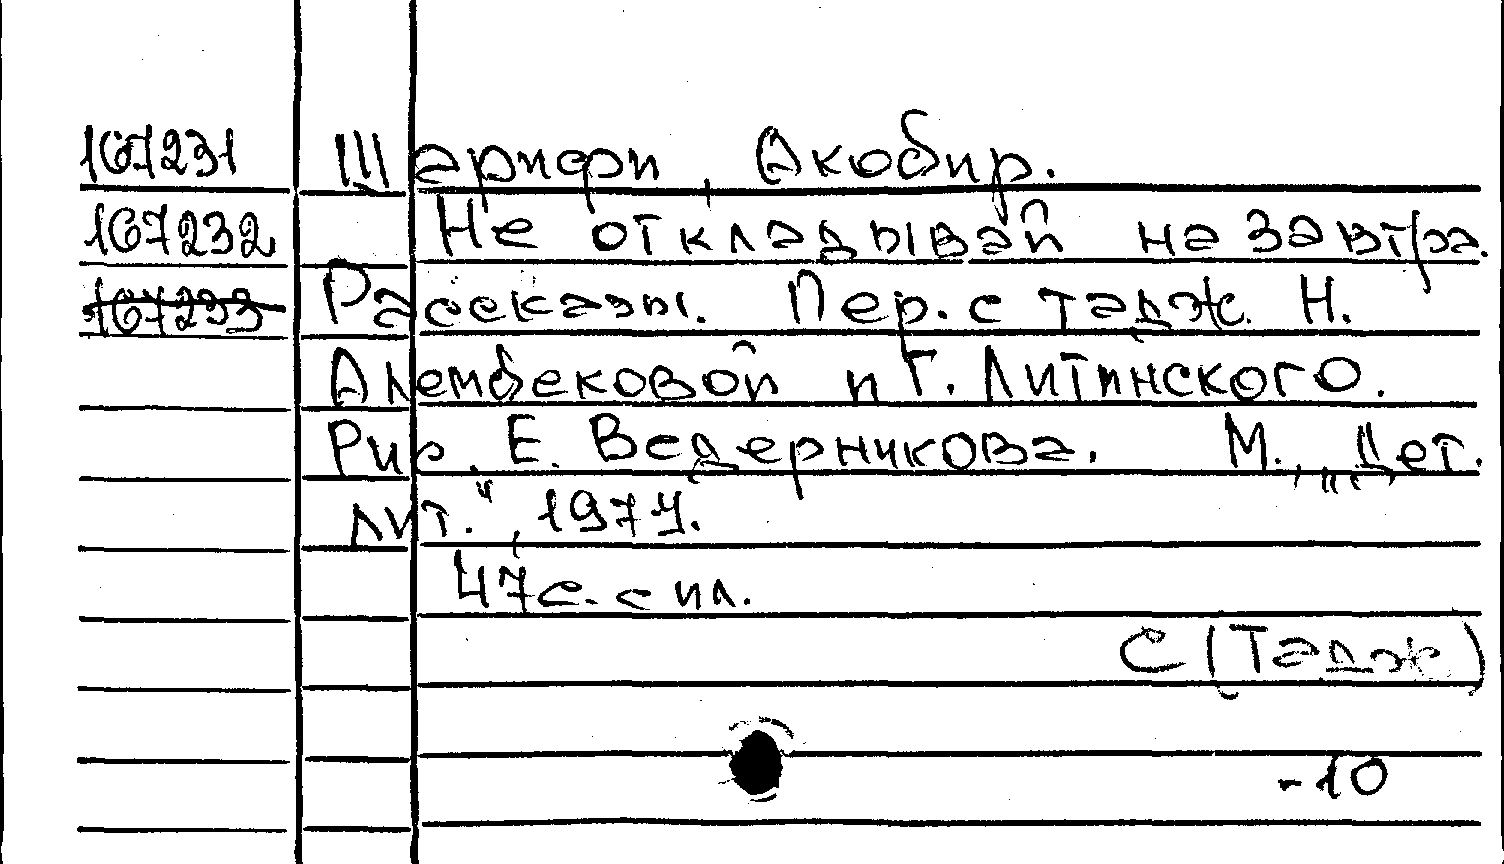 167231 Шарифи, Акобир.
167232 Не откладывай на завтра.
167233 Рассказы. Пер. с тадж. Н.
Алембековой и Г. Литинского.
Рис. Е. Ведерникова. М., "Дет.
лит.", 1974.
47с. с ил.
С(Тадж)
-10